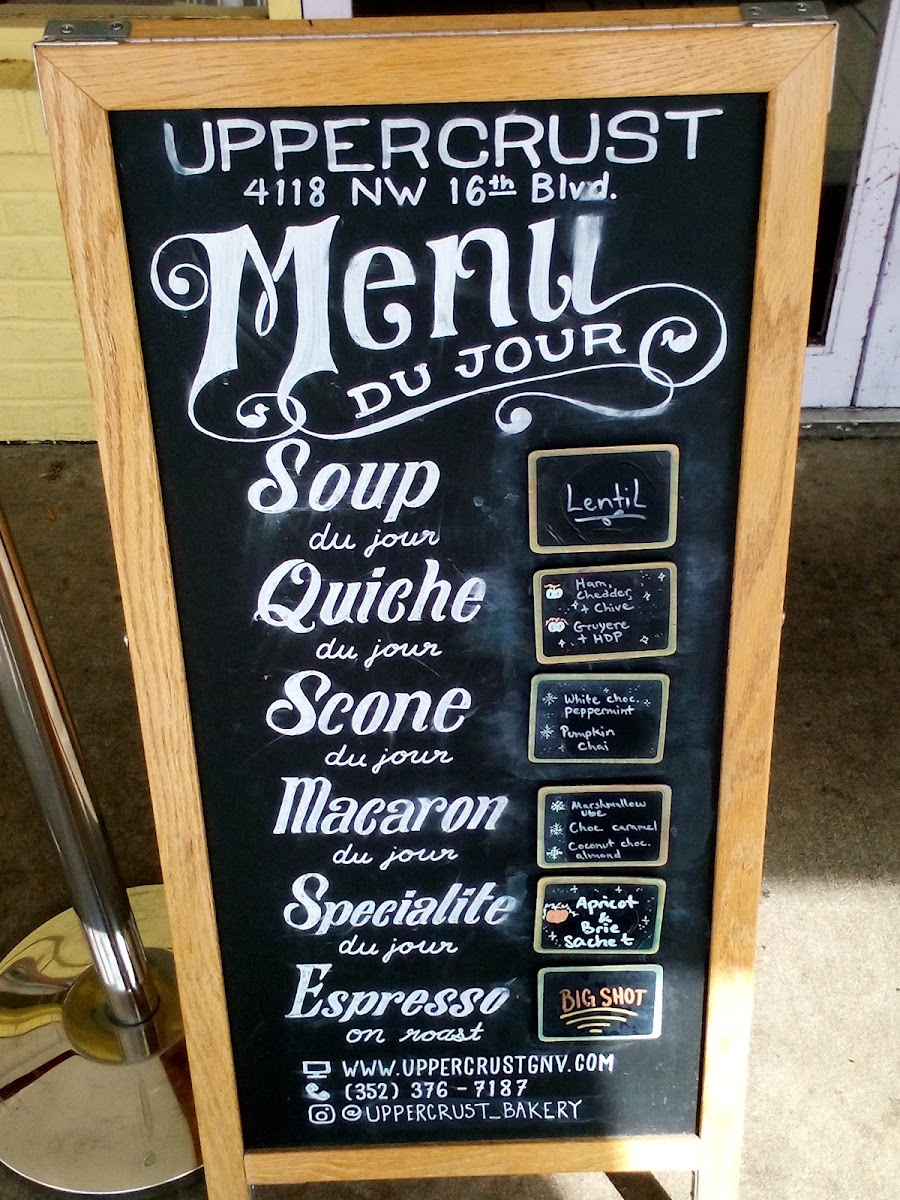 UPPERCRUST
4118 NW 16th Blvd.
Menu
DU JOUR
Soup
du jour
Lentil
Quiche
du jour
Ham,
Chedder,
+ Chive
Gruyere
+ HDP
Scone
du jour
White choc.
peppermint
Pumpkin
Chai
Macaron
du jour
Marshmallow
ube
Choc caramel
Coconut choc.
almond
Specialite
du jour
Apricot
&
Brie
Sachet
Espresso
on roast
BIG SHOT
WWW.UPPERCRUSTGNV.COM
(352) 376-7187
@UPPERCRUST_BAKERY